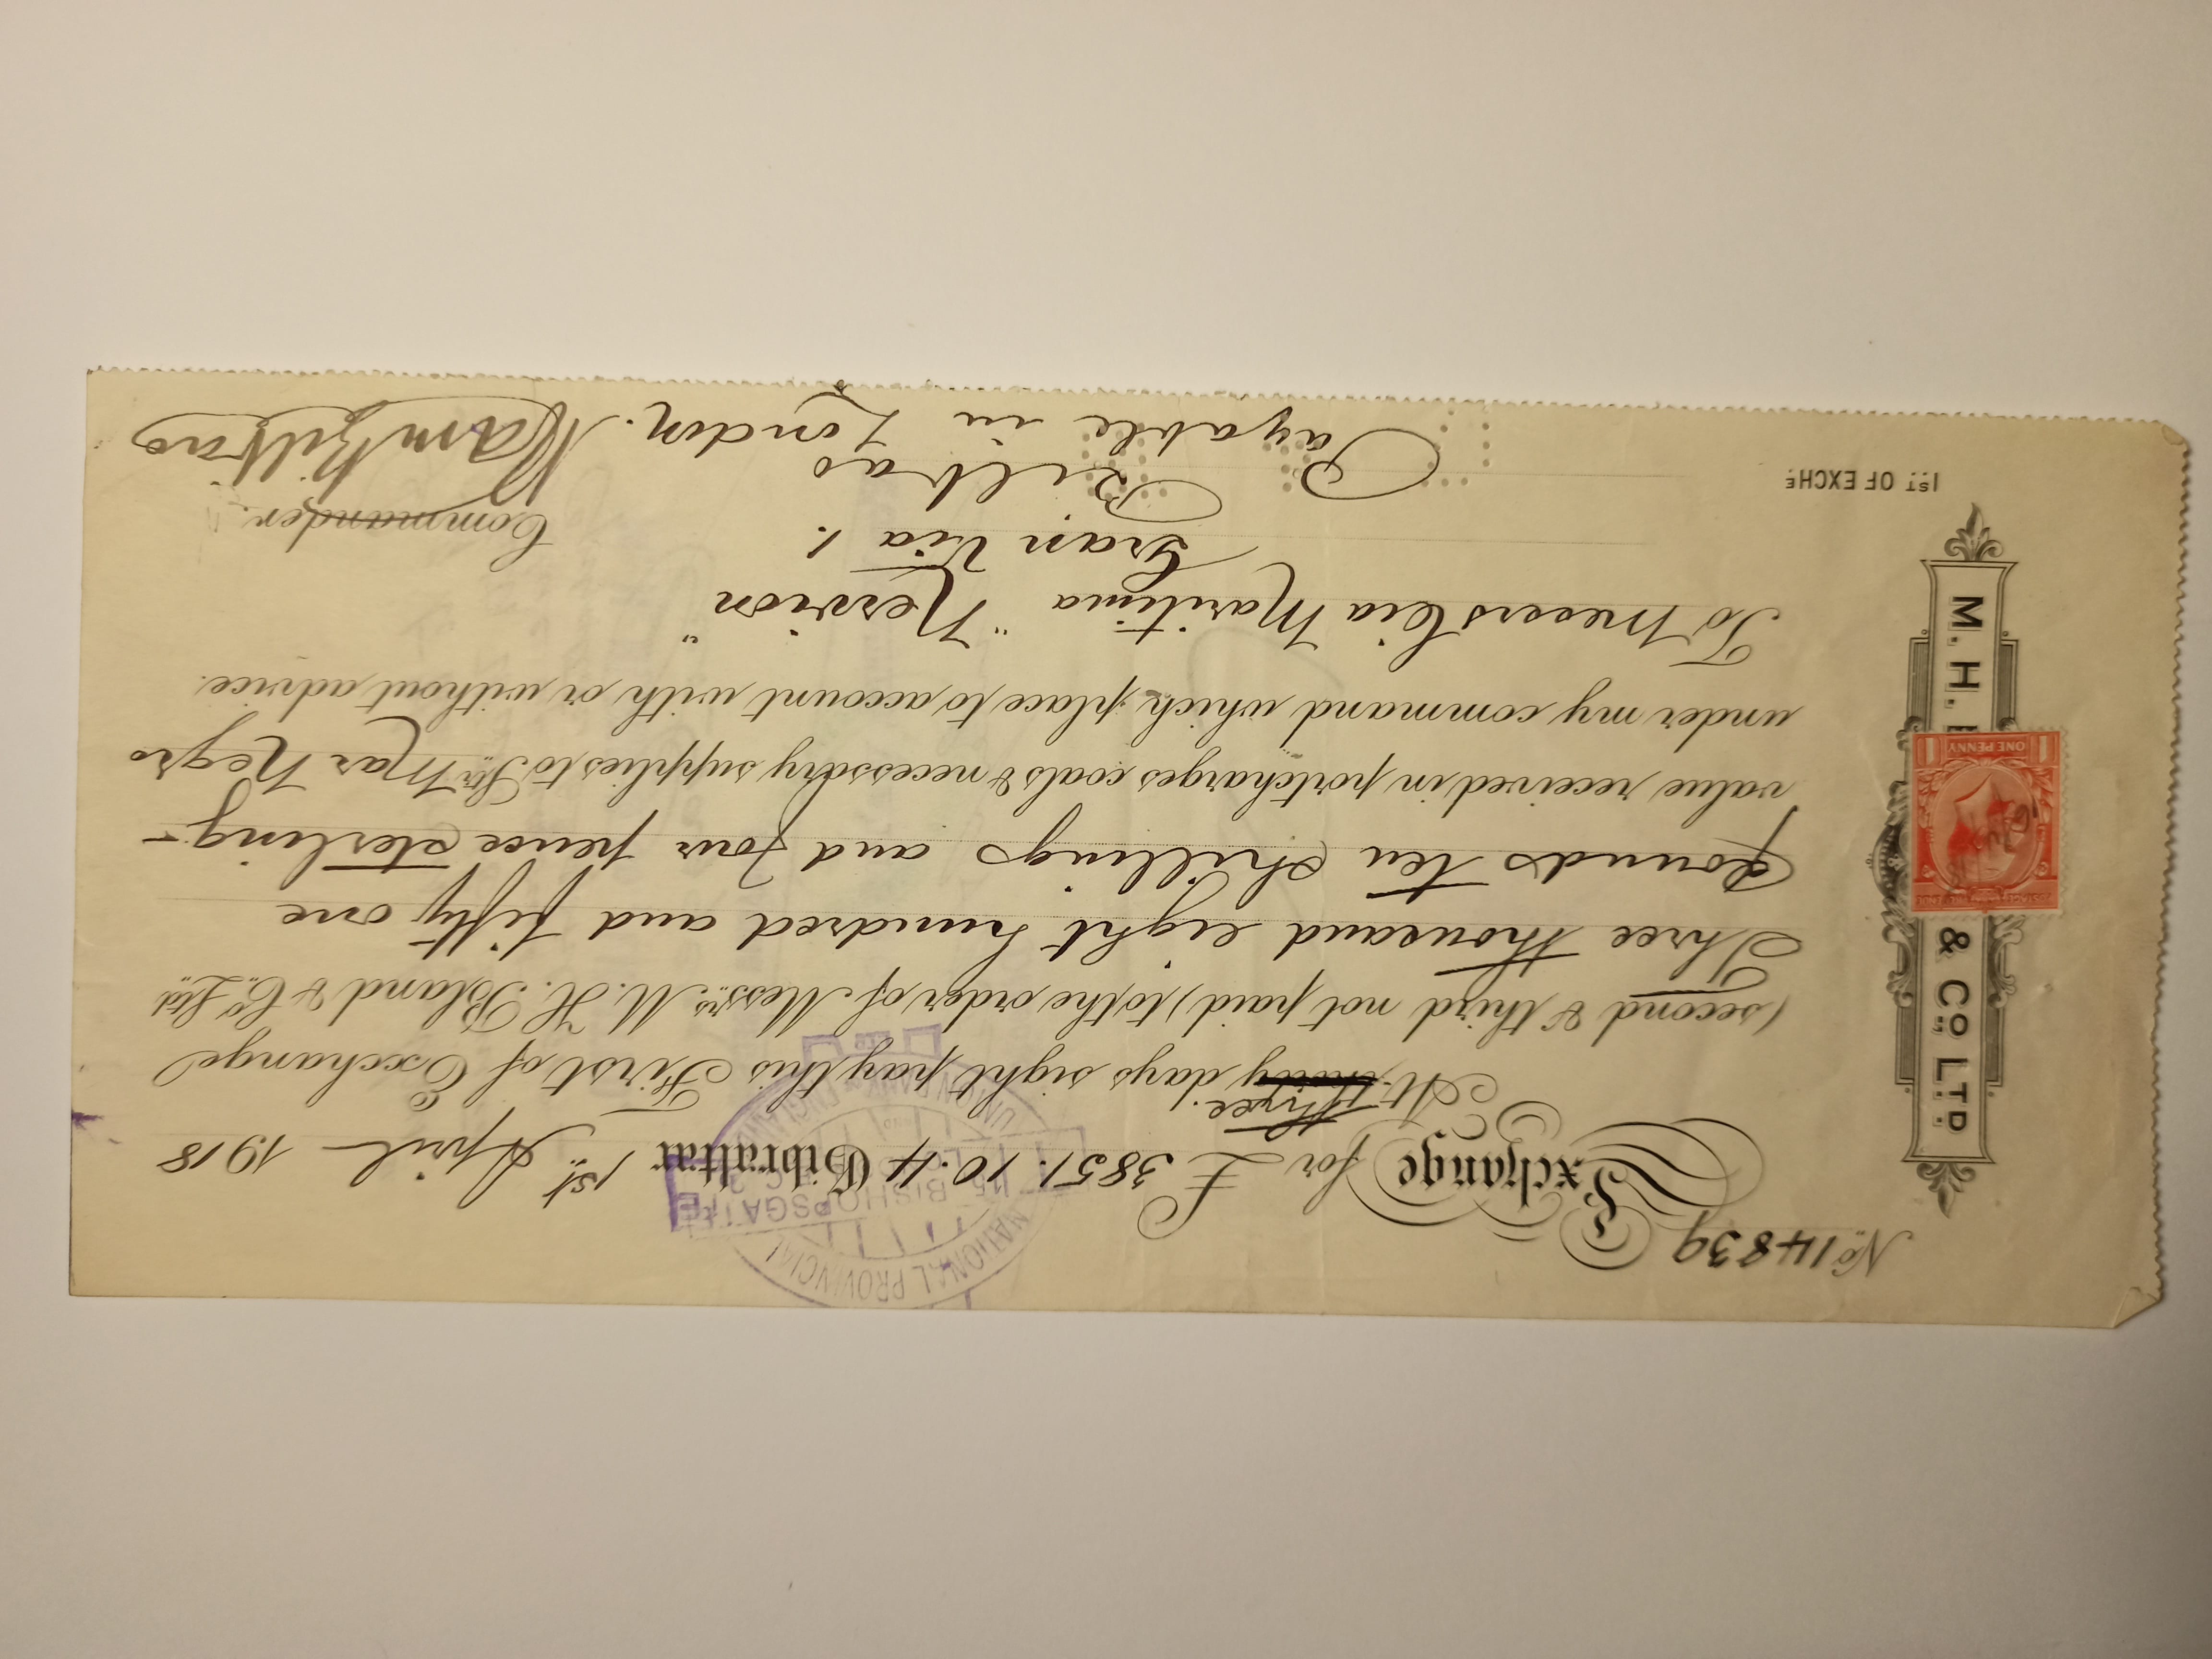 No. 14839
Exchange for £ 3851. 10. 4 Gibraltar 1st. April 1918
three
At thirty days sight pay this First of Exchange
(second & third not paid) to the order of Messrs. M. H. Bland & Co. Ltd
Three thousand eight hundred and fifty one
Pounds ten shillings and four pence sterling -
value received in port charges coals & necessary supplies to Str. Mar Negro
under my command which place to account with or without advice.
To Messrs Cia Maritima "Nervion"
Gran Via 1.
Bilbao
Payable in London.
Commander.
M. H. B & CO., LTD.
1ST OF EXCHE
POSTAGE REVENUE
ONE PENNY
NATIONAL PROVINCIAL
15 BISHOPSGATE
E.C.2
UNION BANK OF ENGLAND
LTD